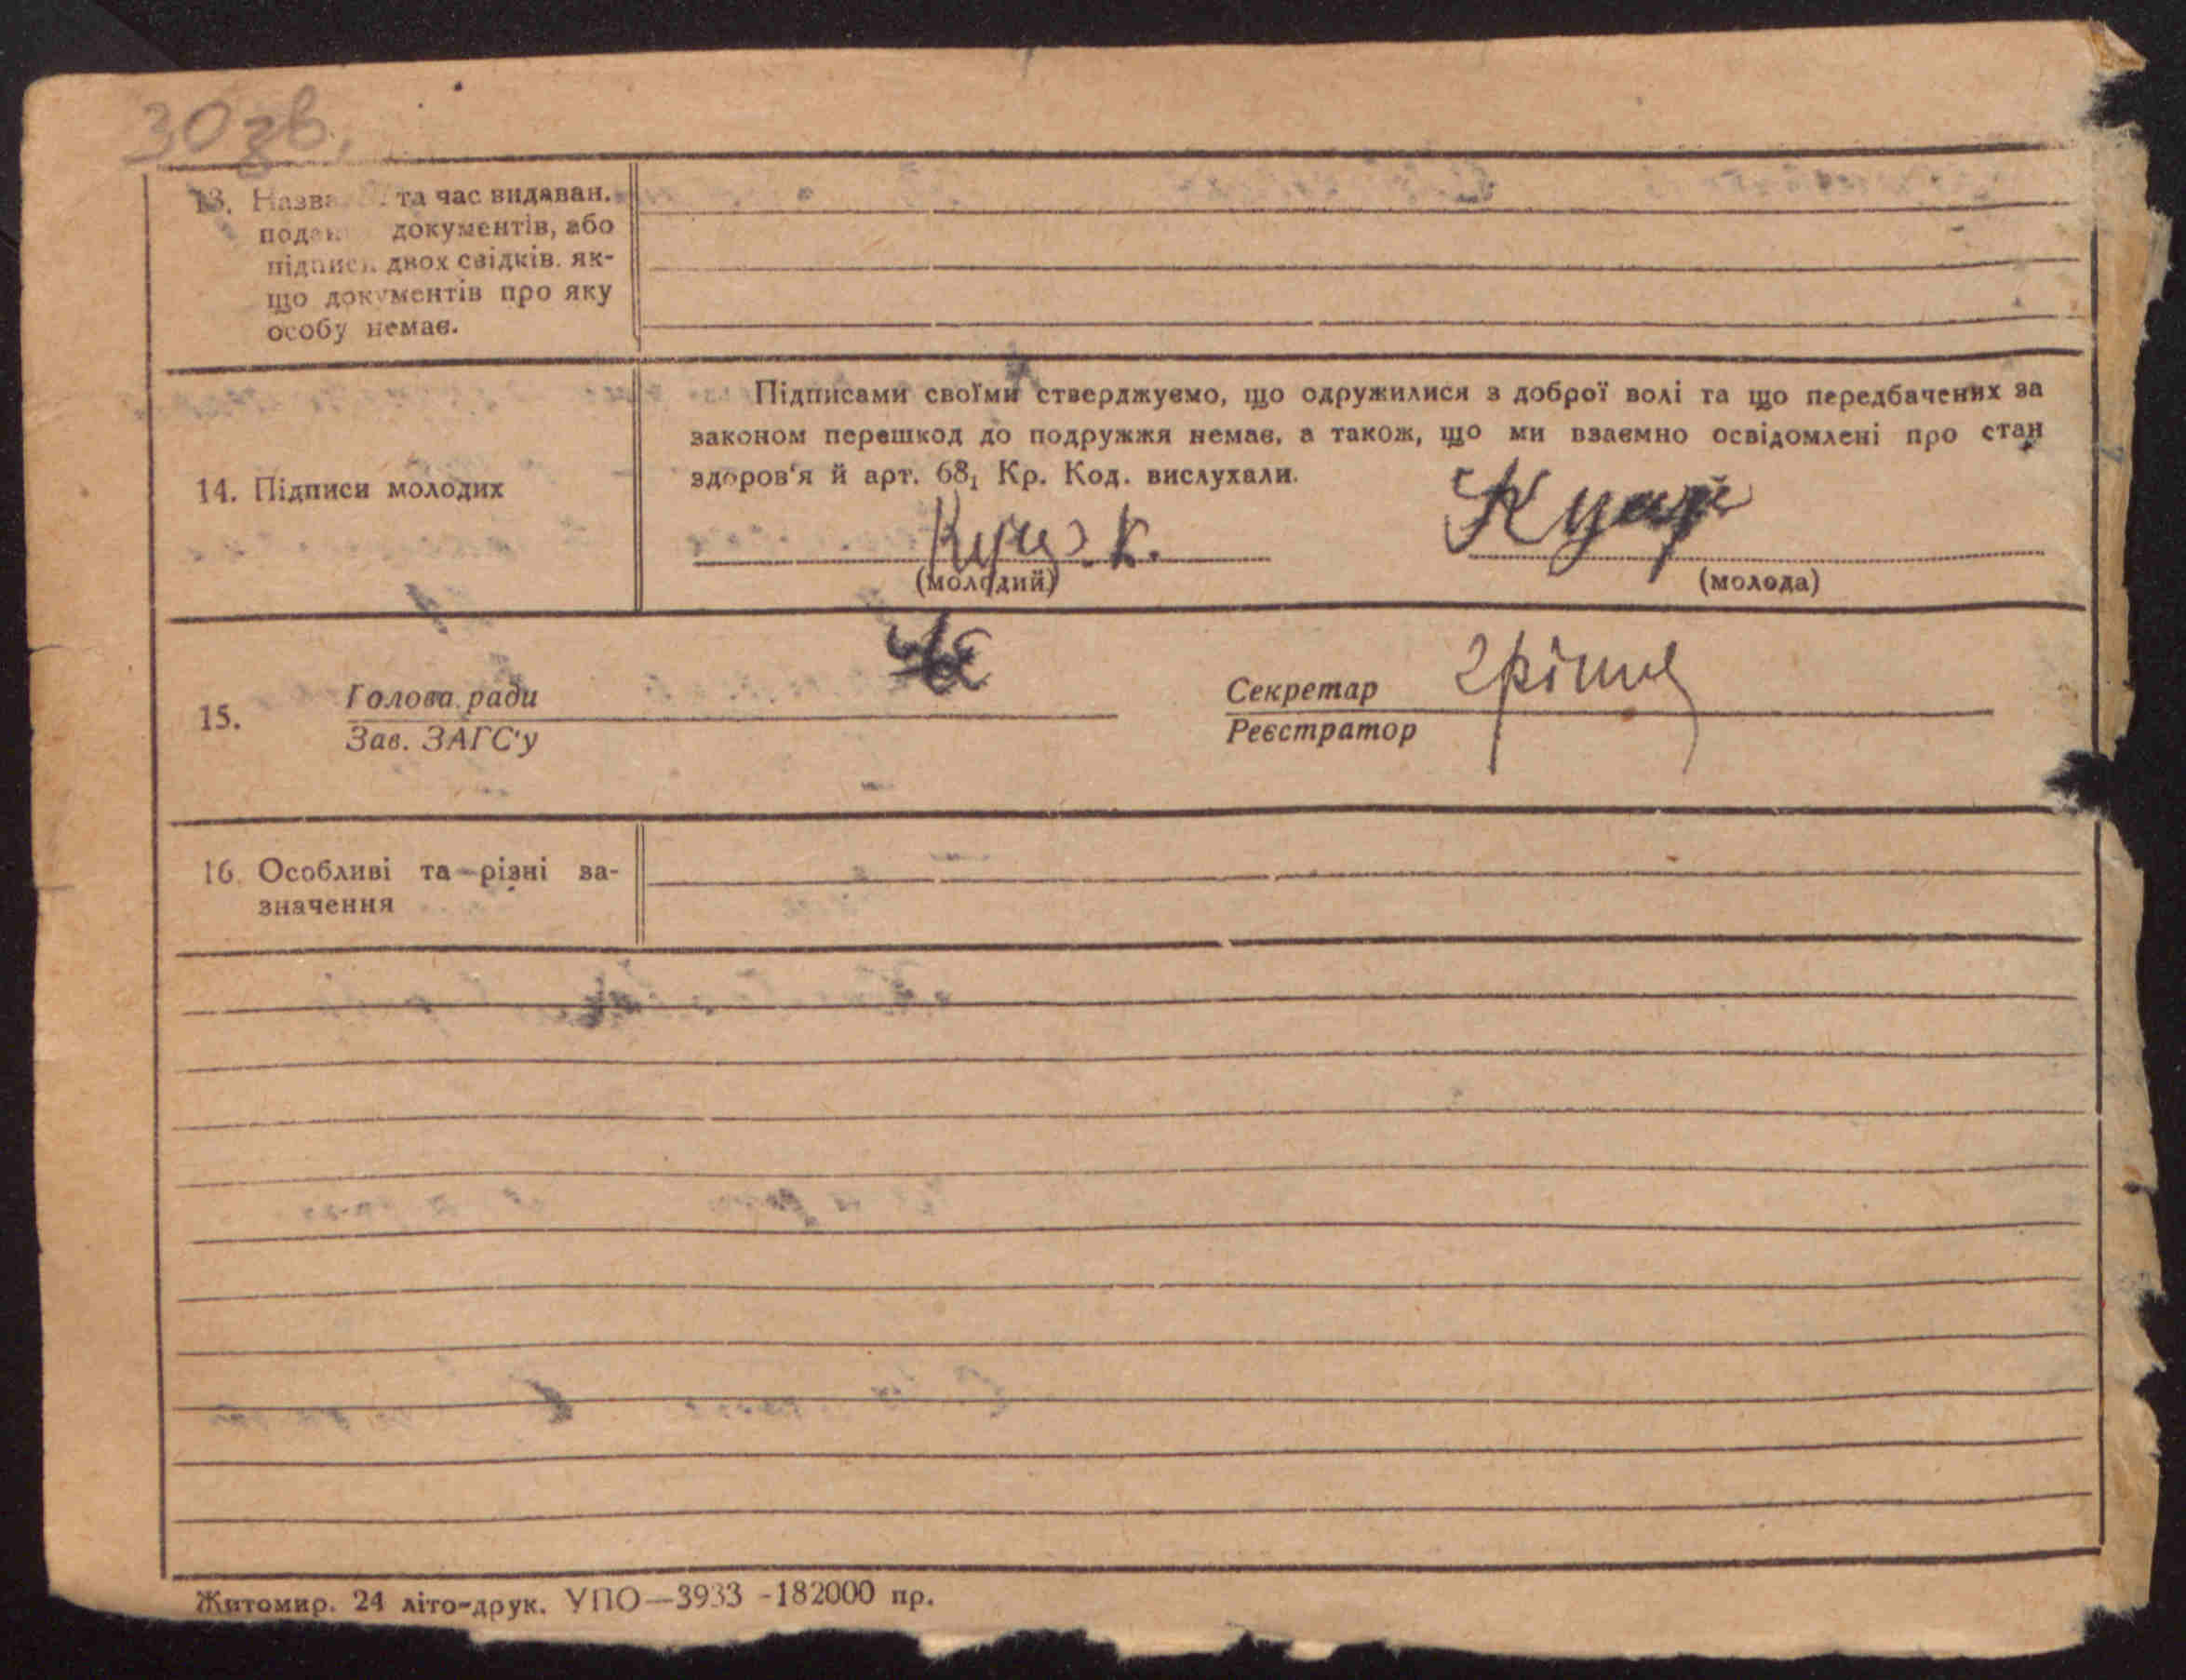 30 зв.
13. Назва та час видаван.
подан документів, або
підписи двох свідків. як-
що документів про яку
особу немає.
14. Підписи молодих
Підписами своїми стверджуємо, що одружилися з доброї волі та що передбачених за
законом перешкод до подружжя немає, а також, що ми взаємно освідомлені про стан
здоров'я й арт. 68₁ Кр. Код. вислухали.
(молодий)
(молода)
15.
Голова ради
Зав. ЗАГС'у
Секретар
Реєстратор
16. Особливі та різні за-
значення
Житомир. 24 літо-друк. УПО—3933 -182000 пр.